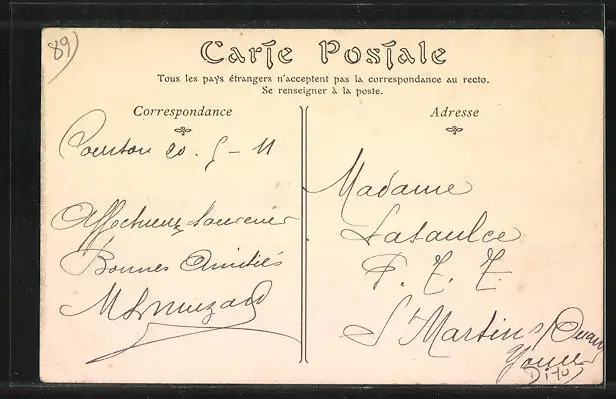 89
Carte Postale
Tous les pays étrangers n'acceptent pas la correspondance au recto.
Se renseigner à la poste.
Correspondance
20 . 5 - 11
Affectueux Souvenir
Bonnes Amitiés
Adresse
Madame
Lasaulce
P. T. T.
St Martin s/ Ouanne
Yonne